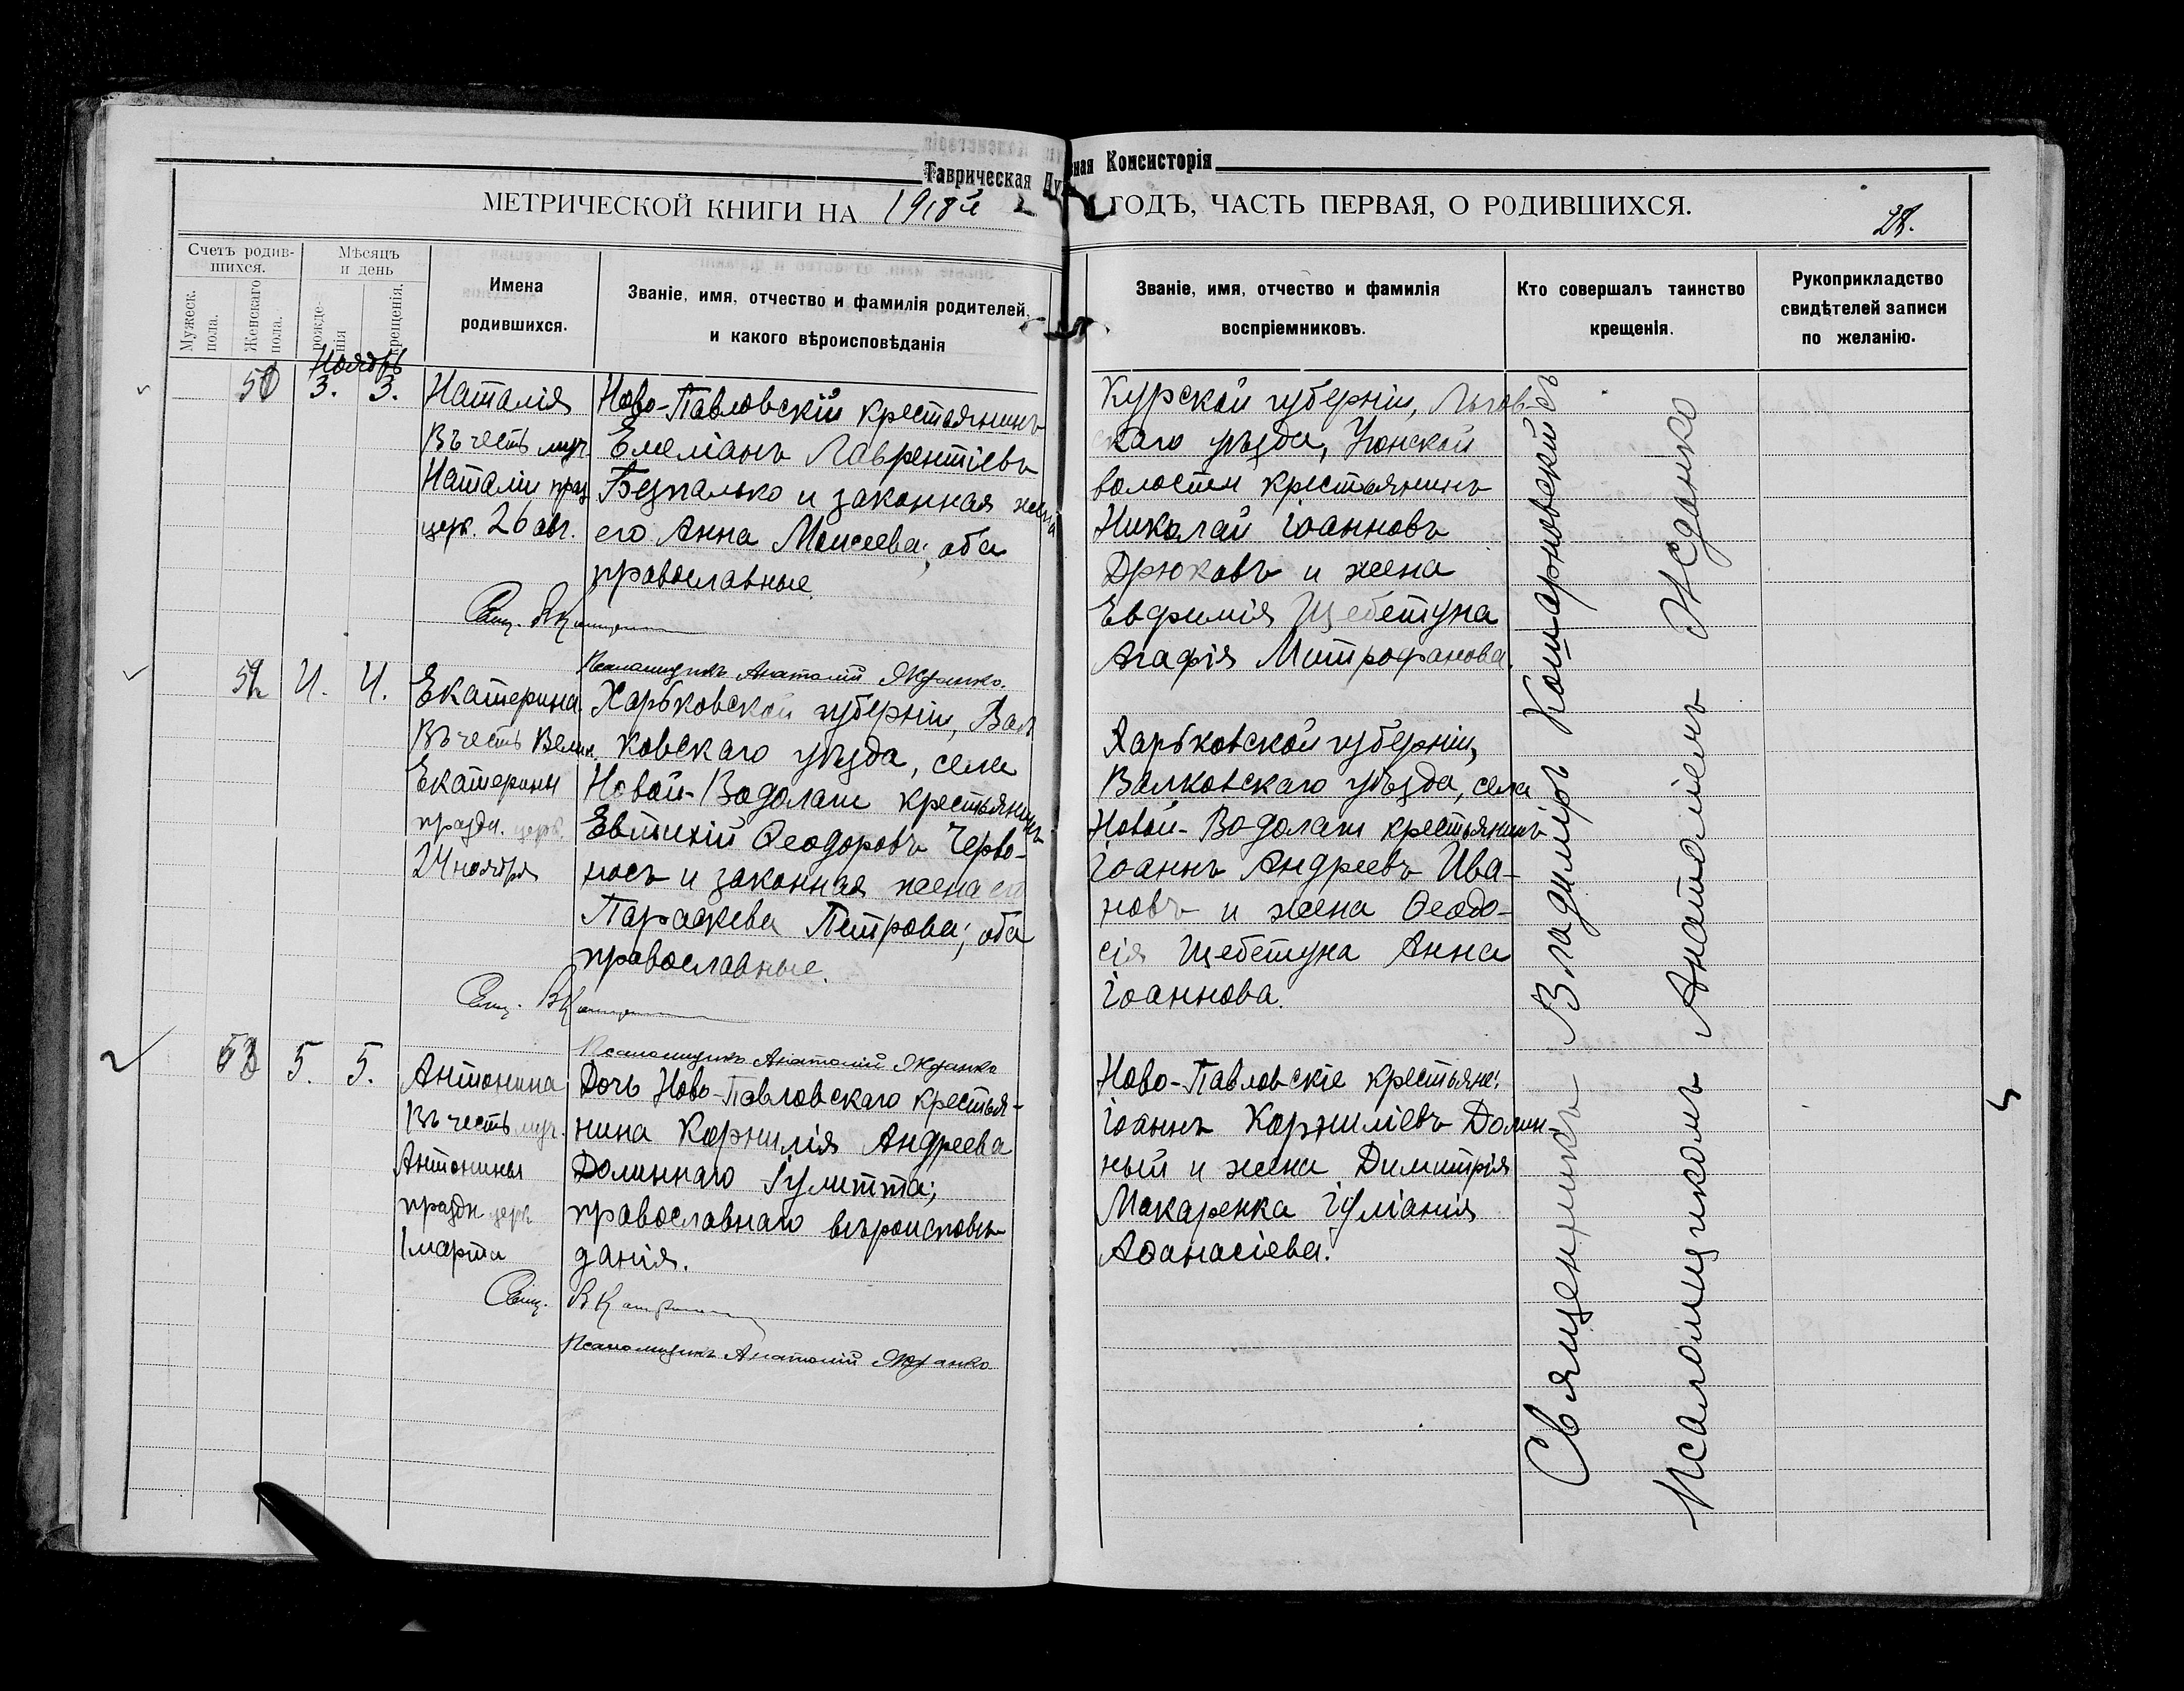 Таврическая Ду ная Консисторія
МЕТРИЧЕСКОЙ КНИГИ НА 1918й ГОДЪ, ЧАСТЬ ПЕРВАЯ, О РОДИВШИХСЯ.
28.
Счетъ родив-
шихся.
Мужеск.
пола.
Женскаго
пола.
Мѣсяцъ
и день
рожде-
нія
крещенія.
Имена
родившихся.
Званіе, имя, отчество и фамилія родителей,
и какого вѣроисповѣданія
Званіе, имя, отчество и фамилія
воспріемниковъ.
Кто совершалъ таинство
крещенія.
Рукоприкладство
свидѣтелей записи
по желанію.
Ноябрь
3. 3.
Наталія
Въ честь муч.
Наталіи праз.
церк. 26 авг.
Ново-Павловскій крестьянинъ
Емеліанъ Лаврентіевъ
Безпалько и законная жена
его Анна Моисеева; оба
православные.
Свящ.
Псаломщикъ Анатолій Жданко.
Курской губерніи, Льгов-
скаго уѣзда, Угонской
волости крестьянинъ
Николай Іоанновъ
Дрюковъ и жена
Евфимія Щебетуна
Агафія Митрофанова.
4. 4.
Екатерина
Въ честь Велик.
Екатерины
праздн. церк.
24 ноября
Харьковской губерніи, Вал
ковскаго уѣзда, села
Новой-Водолаги крестьянинъ
Евтихій Ѳеодоровъ Черво-
носъ и законная жена его
Параскева Петрова; оба
православные.
Свящ.
Псаломщикъ Анатолій Жданко
Харьковской губерніи,
Валковскаго уѣзда, села
Новой-Водолаги крестьянинъ
Іоаннъ Андреевъ Ива-
новъ и жена Ѳеодо-
сія Щебетуна Анна
Іоаннова.
5. 5.
Антонина
Въ честь муч.
Антонины
праздн. церк.
1 марта
Дочь Ново-Павловскаго крестья-
нина Корнилія Андреева
Долиннаго Іулитта;
православнаго вѣроисповѣ-
данія.
Свящ.
Псаломщикъ Анатолій Жданко
Ново-Павловскіе крестьяне:
Іоаннъ Корниліевъ Долин-
ный и жена Димитрія
Макаренка Іуліанія
Аѳанасіева.
Священникъ Владиміръ Котарновскій съ
Псаломщикомъ Анатоліемъ Жданко